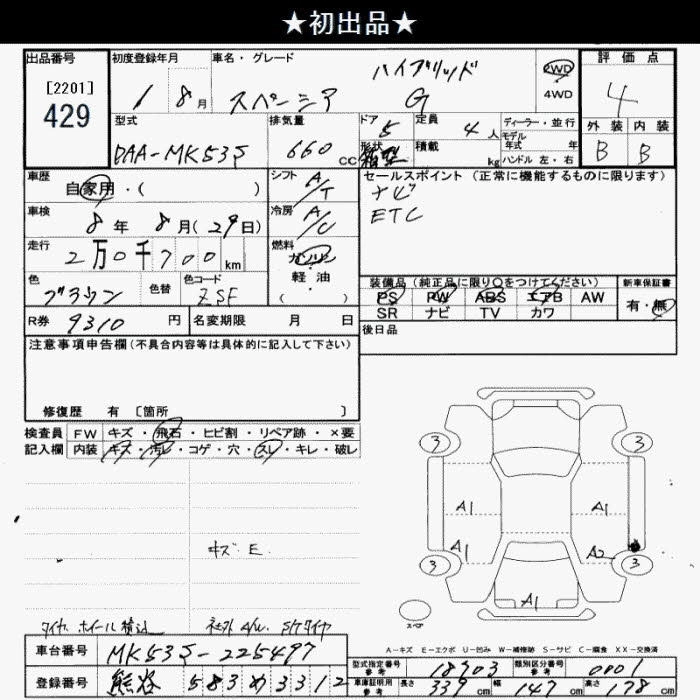 ★初出品★
出品番号 [2201] 429
初度登録年月 1 8月
車名・グレード スペーシア ハイブリッド G
2WD 4WD
評価点 4
外装 内装
B B
型式 DAA-MK53S
排気量 660 cc
ドア 5 形状 箱型
定員 4人
積載 kg
ディーラー・並行
モデル年式 年
ハンドル 左・右
車歴 自家用・( )
シフト A/T
セールスポイント(正常に機能するものに限ります)
ナビ
ETC
車検 8年 8月(29日)
冷房 A/C
走行 2万0千700km
燃料 ガソリン・軽油・( )
色 ブラウン 色替 色コード ZSF
装備品(純正品に限り○をつけてください) 新車保証書
PS PW ABS エアB AW
SR ナビ TV カワ
有・無
R券 9310円 名変期限 月 日
後日品
注意事項申告欄(不具合内容等は具体的に記入して下さい)
修復歴 有 〔箇所 〕
検査員記入欄
FW キズ・飛石・ヒビ割・リペア跡・×要
内装 キズ・汚レ・コゲ・穴・スレ・キレ・破レ
3 3
A1 A1
A1 A2
3 3
A1
スペア
キズ E
タイヤ、ホイール積込 社外A/W、S/Tタイヤ
A-キズ E-エクボ U-凹み W-補修跡 S-サビ C-腐食 XX-交換済
車台番号 MK53S-225497
登録番号 熊谷 583 め 3312
型式指定番号参考 18703 類別区分番号参考 0001
車庫証明用参考 長さ 339cm 幅 147cm 高さ 178cm